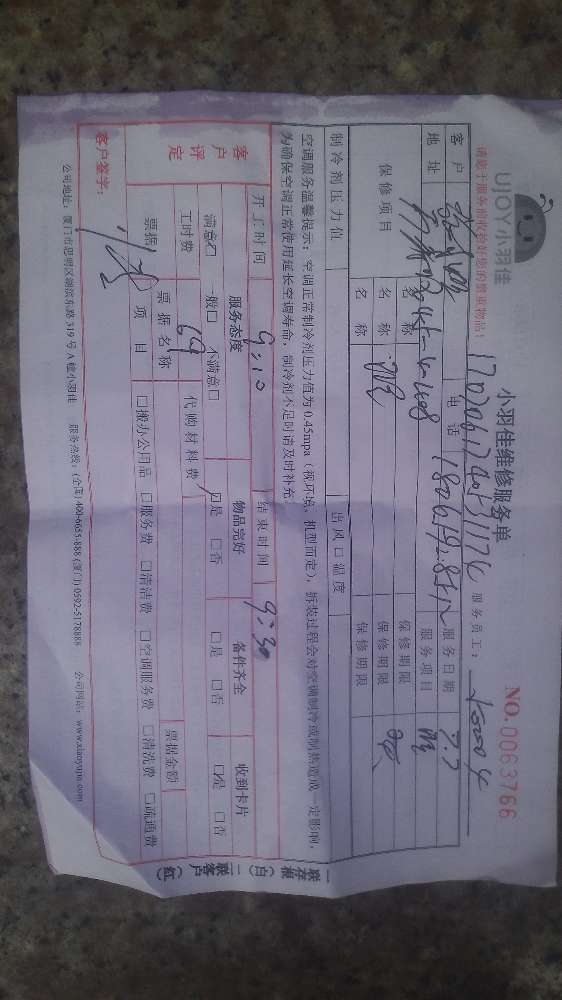 UJOY小羽佳
小羽佳维修服务单
NO.0063766
请您于服务前收拾好您的贵重物品!
服务员工:
客户 电话 服务日期 7.7
地址 服务项目
保修项目 名称 保修期限
名称 保修期限
名称 保修期限
制冷剂压力值 出风口温度
空调服务温馨提示:空调正常制冷剂压力值为0.45mpa(视环境、机型而定),拆装过程会对空调制冷或制热造成一定影响,
为确保空调正常使用延长空调寿命,制冷剂不足时请及时补充。
开工时间 9:10 结束时间 9:30
客户评定 服务态度 物品完好 备件齐全 收到卡片
满意□ 一般□ 不满意□ □是 □否 □是 □否 □是 □否
工时费 69 代购材料费
票据 票据名称 票据金额
项目 □搬办公用品 □服务费 □清洁费 □空调服务费 □清洗费 □疏通费
客户签字:
公司地址:厦门市思明区湖滨东路319号A幢小羽佳 服务热线:(全国)400-6655-888 (厦门)0592-5178888 公司网站:www.xiaoyujia.com
一联存根(白)
二联客户(红)